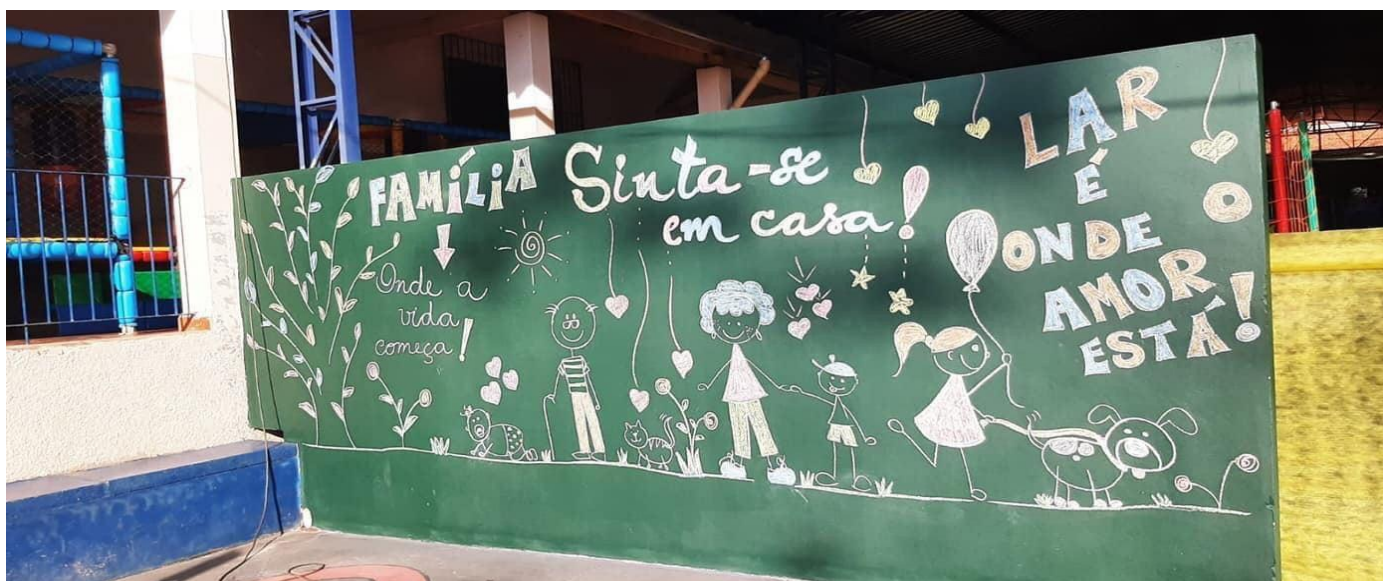 FAMÍLIA
Onde a
vida
começa!
Sinta-se
em casa!
LAR
É
ONDE O
AMOR
ESTÁ!